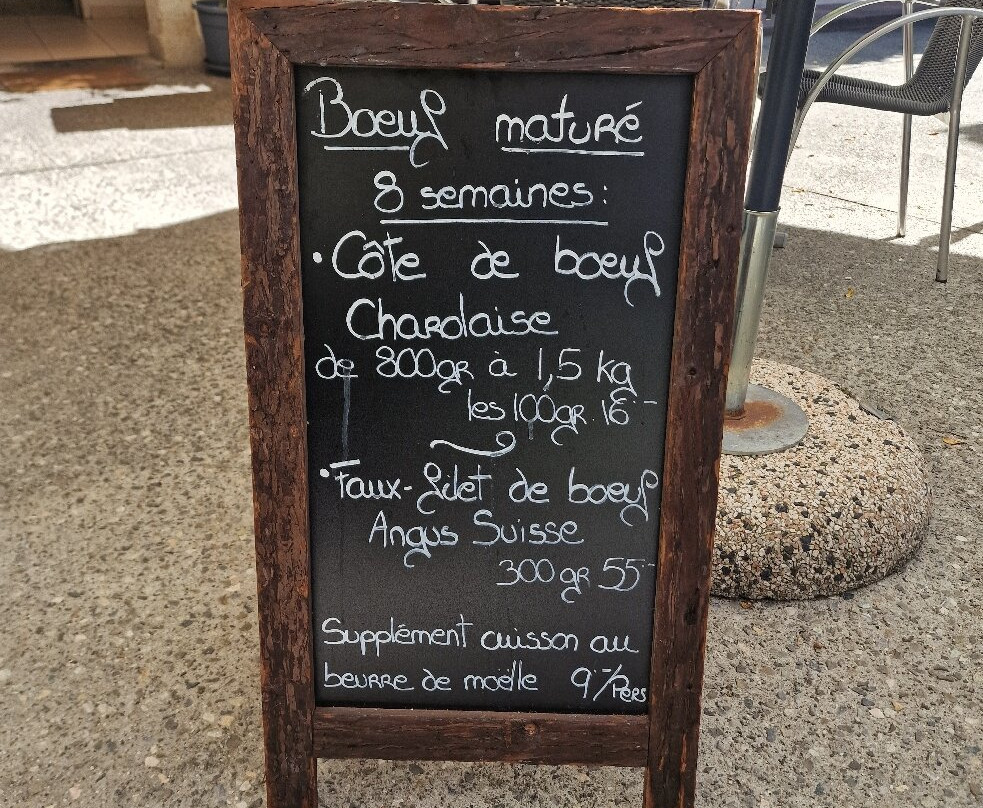 Boeuf maturé
8 semaines:
• Côte de boeuf
Charolaise
de 800gr à 1,5 kg
les 100gr 16.--
• Faux-filet de boeuf
Angus Suisse
300 gr 55.--
Supplément cuisson au
beurre de moëlle 9.-/Pers